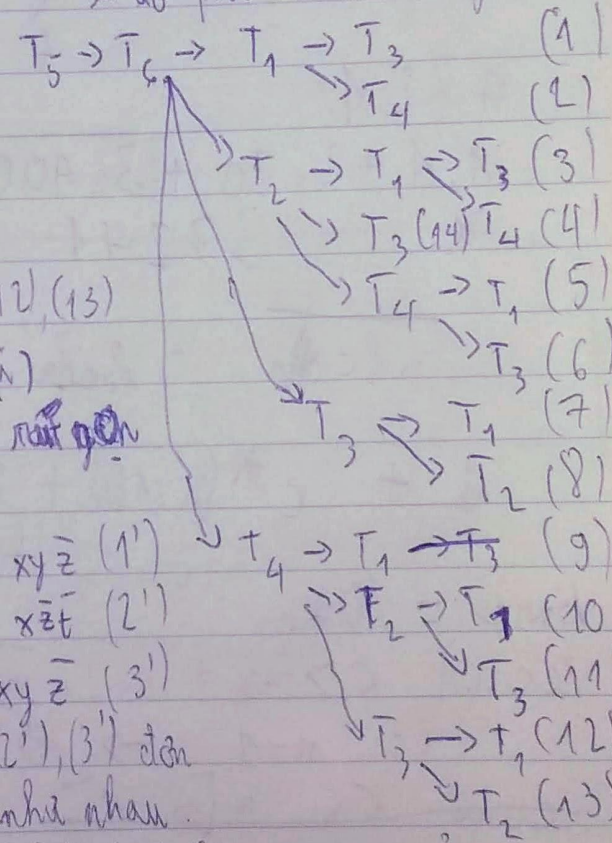 T₅ → T₆ → T₁ → T₃ (1)
↘ T₄ (2)
↘ T₂ → T₁ → T₃ (3)
↘ T₃ (14) ↘ T₄ (4)
), (13) ↘ T₄ → T₁ (5)
↘ T₃ (6)
↘ T₃ → T₁ (7)
gọn ↘ T₂ (8)
xyz̄ (1') ↘ T₄ → T₁ → T₃ (9)
xz̄t̄ (2') ↘ T₂ → T₁ (10
xyz̄ (3') ↘ T₃ (11
2'), (3') đơn ↘ T₃ → T₁ (12
như nhau. ↘ T₂ (13)